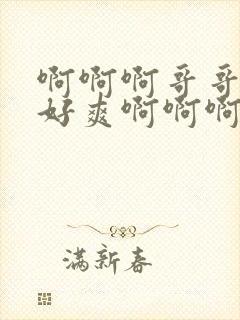 啊啊啊哥哥
好爽啊啊啊
满新春